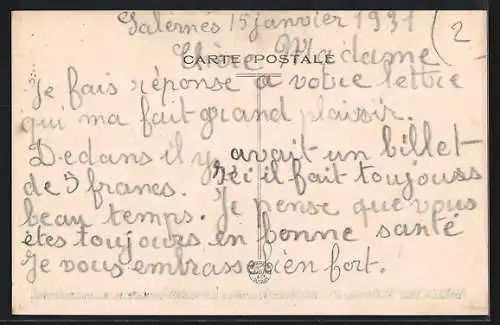 Salernes 15 janvier 1931
2
Chère Madame
CARTE POSTALE
Je fais réponse a votre lettre
qui ma fait grand plaisir.
Dedans il y avait un billet
de 5 francs. Ici il fait toujours
beau temps. Je pense que vous
êtes toujours en bonne santé
Je vous embrasse bien fort.